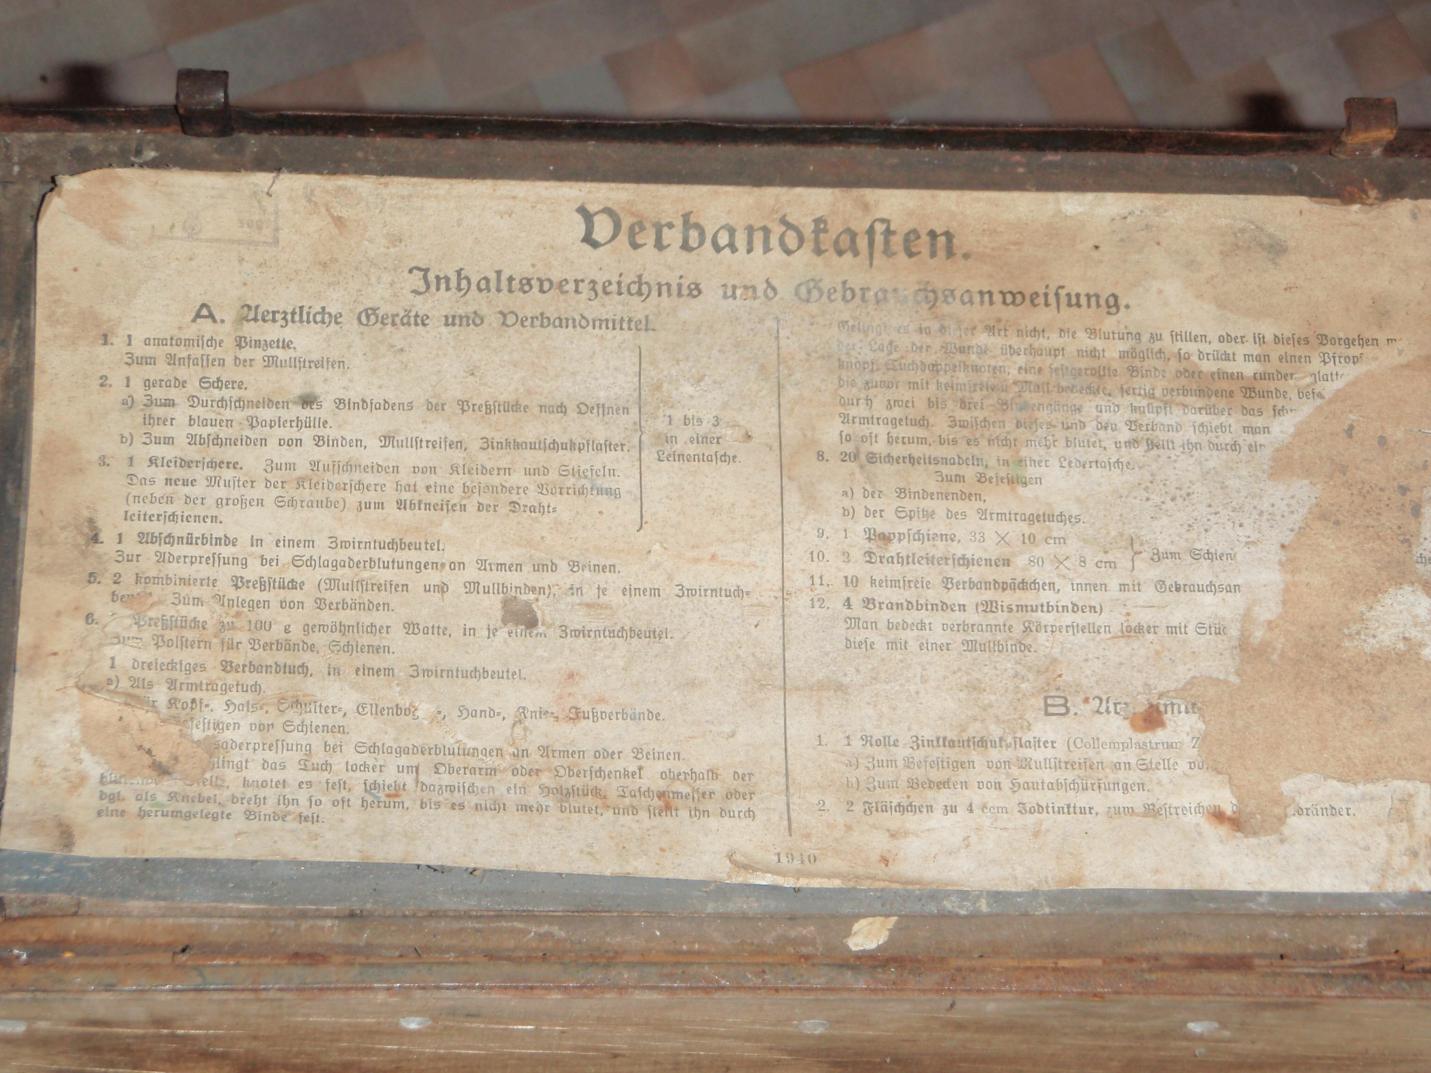 Verbandkasten.
Inhaltsverzeichnis und Gebrauchsanweisung.
A. Aerztliche Geräte und Verbandmittel.
1. 1 anatomische Pinzette.
Zum Anfassen der Mullstreifen.
2. 1 gerade Schere.
a) Zum Durchschneiden des Bindfadens der Preßstücke nach Oeffnen
ihrer blauen Papierhülle.
b) Zum Abschneiden von Binden, Mullstreifen, Zinkkautschukpflaster.
3. 1 Kleiderschere. Zum Aufschneiden von Kleidern und Stiefeln.
Das neue Muster der Kleiderschere hat eine besondere Vorrichtung
(neben der großen Schraube) zum Abkneifen der Draht-
leiterschienen.
1 bis 3
in einer
Leinentasche.
4. 1 Abschnürbinde in einem Zwirntuchbeutel.
Zur Aderpressung bei Schlagaderblutungen an Armen und Beinen.
5. 2 kombinierte Preßstücke (Mullstreifen und Mullbinden), in je einem Zwirntuch-
Zum Anlegen von Verbänden.
6. Preßstücke zu 100 g gewöhnlicher Watte, in je einem Zwirntuchbeutel.
Zum Polstern für Verbände, Schienen.
1 dreieckiges Verbandtuch, in einem Zwirntuchbeutel.
a) Als Armtragetuch.
Kopf-, Hals-, Schulter-, Ellenbog -, Hand-, Knie-, Fußverbände.
von Schienen.
bei Schlagaderblutungen an Armen oder Beinen.
das Tuch locker um Oberarm oder Oberschenkel oberhalb der
knotet es fest, schiebt dazwischen ein Holzstück, Taschenmesser oder
dgl. als Knebel, dreht ihn so oft herum, bis es nicht mehr blutet, und stellt ihn durch
eine herumgelegte Binde fest.
Gelingt es in dieser Art nicht, die Blutung zu stillen, oder ist dieses Vorgehen
der Lage der Wunde überhaupt nicht möglich, so drückt man einen
eine festgerollte Binde oder einen runden,
die zuvor mit keimfreiem Mull bedeckte, fertig verbundene Wunde,
durch zwei bis drei und knüpft darüber das
Armtragetuch. Zwischen dieses und den Verband schiebt man
so oft herum, bis es nicht mehr blutet, und stellt ihn durch
8. 20 Sicherheitsnadeln, in einer Ledertasche.
Zum Befestigen
a) der Bindenenden,
b) der Spitze des Armtragetuches.
9. 1 Pappschiene, 33 × 10 cm
10. 3 Drahtleiterschienen 80 × 8 cm
Zum Schien
11. 10 keimfreie Verbandpäckchen, innen mit Gebrauchsan
12. 4 Brandbinden (Wismutbinden)
Man bedeckt verbrannte Körperstellen locker mit
diese mit einer Mullbinde.
B.
1. 1 Rolle Zinkkautschukpflaster (Collemplastrum Z
a) Zum Befestigen von Mullstreifen an Stelle
b) Zum Bedecken von Hautabschürfungen.
2. 2 Fläschchen zu 4 ccm Jodtinktur, zum Bestreichen
1940